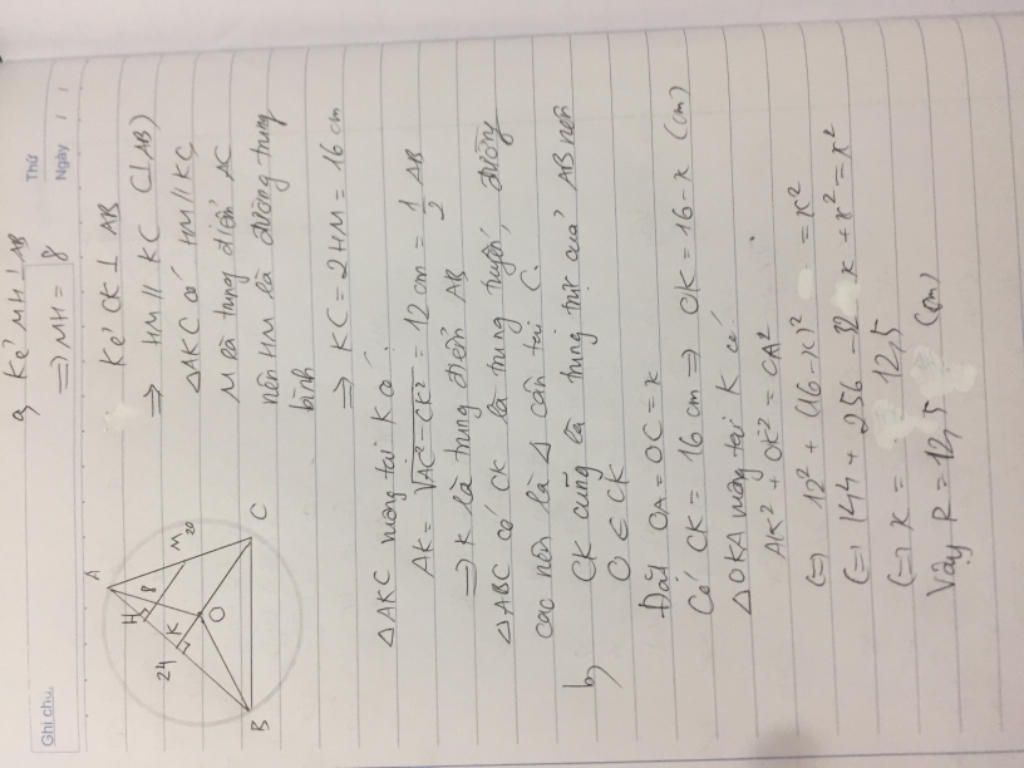 Ghi chú:
Thứ
Ngày
a, Kẻ MH ⊥ AB
⇒ MH = 8
Kẻ CK ⊥ AB
⇒ HM // KC (⊥ AB)
ΔAKC có HM // KC
M là trung điểm AC
nên HM là đường trung
bình
⇒ KC = 2HM = 16 cm
A
H
8
M
20
24
K
O
B
C
ΔAKC vuông tại K có:
AK = √AC² - CK² = 12 cm = 1/2 AB
⇒ K là trung điểm AB
ΔABC có CK là trung tuyến, đường
cao nên là Δ cân tại C.
b, CK cũng là trung trực của AB nên
O ∈ CK
Đặt OA = OC = x
Có CK = 16 cm ⇒ OK = 16 - x (cm)
ΔOKA vuông tại K có
AK² + OK² = OA²
(=) 12² + (16 - x)² = x²
(=) 144 + 256 - 32 x + x² = x²
(=) x = 12,5
Vậy R = 12,5 (cm)